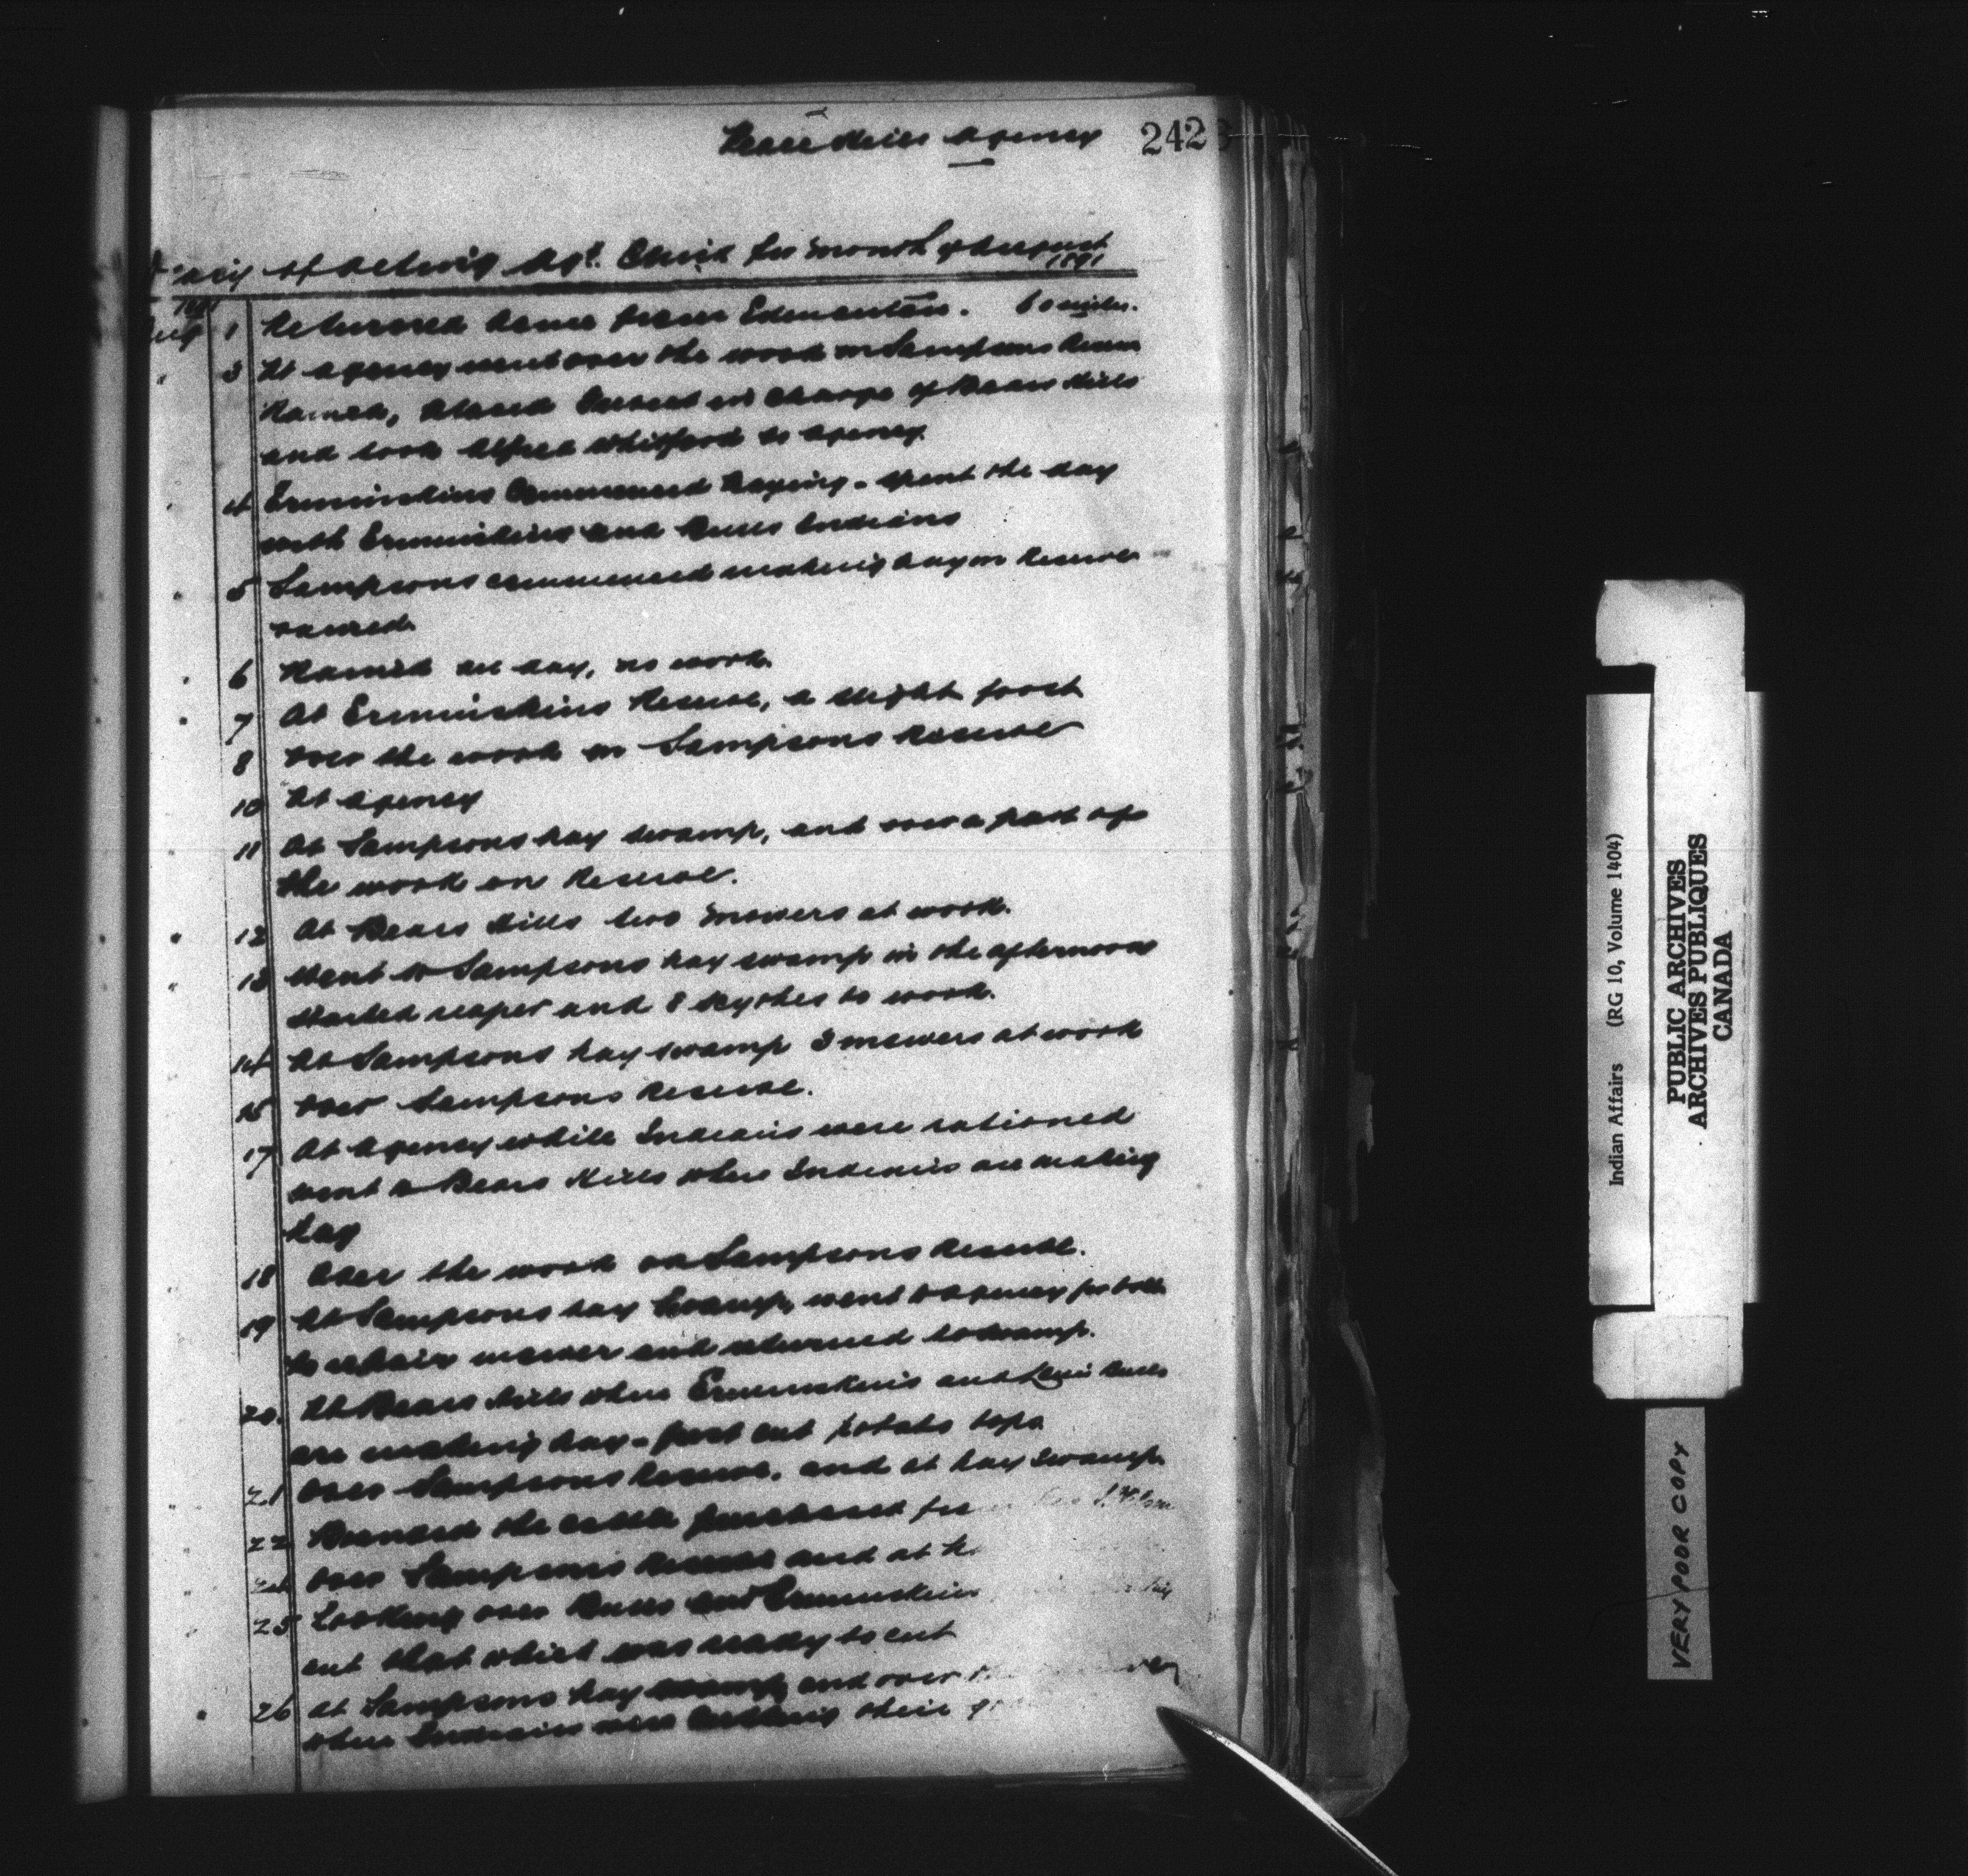 Peace Hills Agency 242
Diary of acting Agt. Clink for month of August
1891
1891
Aug 1 Returned home from Edmonton. 60 miles.
3 At agency went over the work on Sampsons Reserve
Rained, placed in charge of Bears Hills
and took Alfred Whitford to agency.
4 Ermineskins Commenced haying - spent the day
with Ermineskins and Bulls Indians
5 Sampsons commenced making hay on Reserve
rained.
6 Rained all day, no work.
7 At Ermineskins Reserve, a slight frost
8 over the work on Sampsons Reserve
10 At agency
11 At Sampsons hay swamp, and over a part of
the work on Reserve.
12 At Bears Hills two mowers at work.
13 Went to Sampsons hay swamp in the afternoon
started reaper and 8 scythes to work.
14 At Sampsons hay swamp 3 mowers at work
15 over Sampsons Reserve.
17 At agency while Indians were rationed
went to Bears Hills where Indians are making
hay
18 Over the work on Sampsons Reserve.
19 At Sampsons hay Swamp, went to agency for bolts
to repair mower and returned to swamp.
20. At Bears Hills where Ermineskins and Louis Bulls
are making hay - frost cut potato tops
21 Over Sampsons Reserve, and at hay swamp.
22 Branded the cattle purchased
24 Over Sampsons Reserve and at
25 Looking over Bulls and Ermineskins
cut that which was ready to cut
26 At Sampsons hay swamp and over
where Indians were cutting their
Indian Affairs (RG 10, Volume 1404)
PUBLIC ARCHIVES
ARCHIVES PUBLIQUES
CANADA
VERY POOR COPY